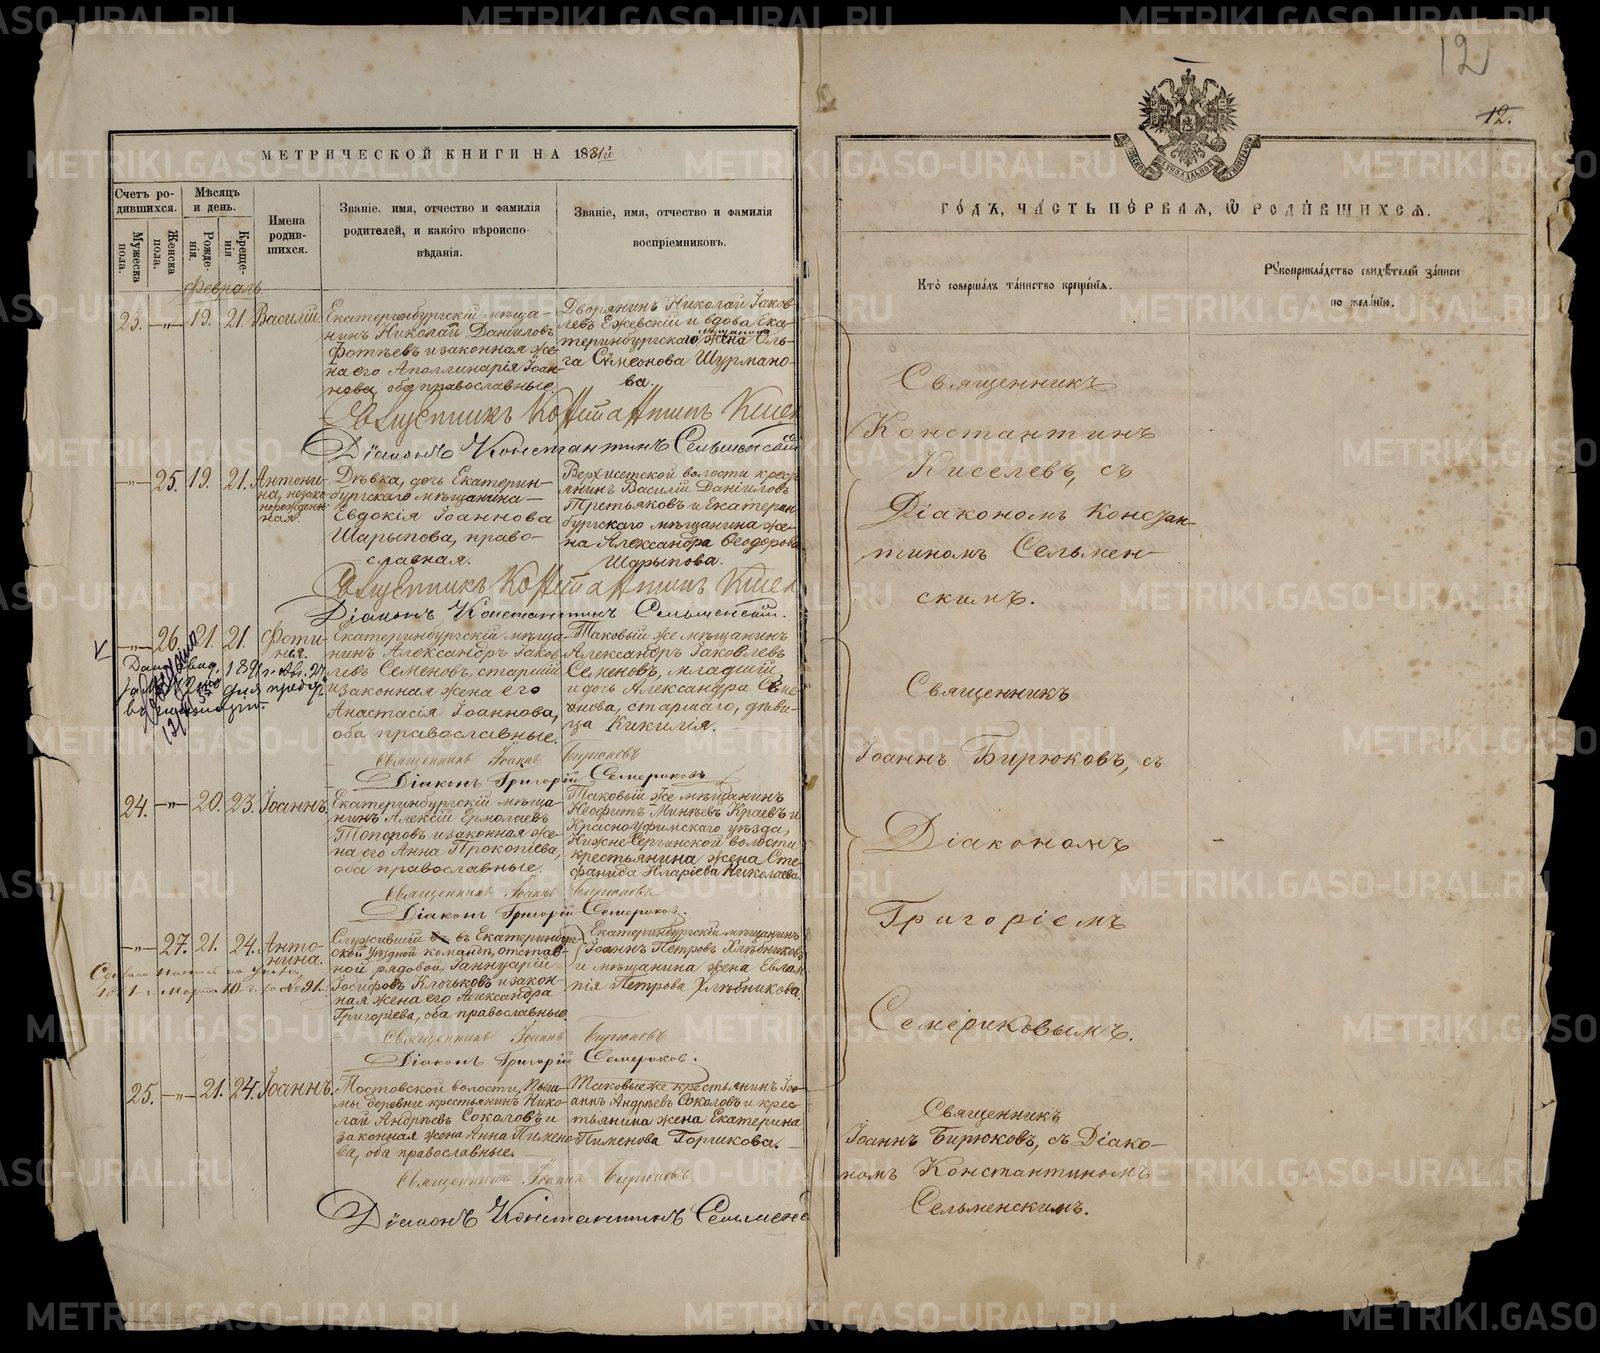 12
12.
МЕТРИЧЕСКОЙ КНИГИ НА 1881й
ГОДЪ, ЧАСТЬ ПЕРВАЯ, Ѿ РОДИВШИХСЯ.
Счетъ ро-
дившихся.
Мужеска
пола.
Женска
пола.
Мѣсяцъ
и день.
Рожде-
нія.
Креще-
нія.
Имена
родив-
шихся.
Званіе, имя, отчество и фамилія
родителей, и какого вѣроиспо-
вѣданія.
Званіе, имя, отчество и фамилія
воспріемниковъ.
Кто совершалъ таинство крещенія.
Рукоприкладство свидѣтелей записи
по желанію.
Февраль
23. —„— 19. 21. Василій.
Екатеринбургскій мѣща-
нинъ Николай Даниловъ
Фотѣевъ и законная же-
на его Аполлинарія Іоан-
нова, оба православные.
Дворянинъ Николай Іаков-
левъ Ежевскій и вдова Ека-
теринбургскаго мѣщанина жена Оль-
га Симеонова Шурмано-
ва.
Священникъ Константинъ Кисел
Діаконъ Константинъ Сельменскій
—„— 25. 19. 21. Антони-
на, незако-
норожден-
ная.
Дѣвка, дочь Екатерин-
бургскаго мѣщанина
Евдокія Іоаннова
Шарыпова, право-
славная.
Верхисетской волости крест
янинъ Василій Даніиловъ
Третьяковъ и Екатерин
бургскаго мѣщанина же-
на Александра Ѳеодорова
Шарыпова.
Священникъ Константинъ Кисел
Діаконъ Константинъ Сельменскій.
—„— 26. 21. 21. Фоти-
нья.
Екатеринбургскій мѣща-
нинъ Александръ Іаков-
левъ Семеновъ, старшій
и законная жена его
Анастасія Іоаннова,
оба православные.
Таковый же мѣщанинъ
Александръ Іаковлевъ
Семеновъ, младшій
и дочь Александра Семе
онова, старшаго, дѣви-
ца Кикилія.
Священникъ Іоаннъ Бирюковъ
Діаконъ Григорій Семериковъ
24. —„— 20. 23. Іоаннъ.
Екатеринбургскій мѣща-
нинъ Алексій Ермолаевъ
Топоровъ и законная же-
на его Анна Прокопіева,
оба православные.
Таковый же мѣщанинъ
Неофитъ Минѣевъ Краевъ и
Красноуфимскаго уѣзда,
Нижне-Сергинской волости
крестьянина жена Сте-
фанида Иларіева Николаева.
Священникъ Іоаннъ Бирюковъ
Діаконъ Григорій Семериковъ.
—„— 27. 21. 24. Анто-
нина.
Служившій въ Екатеринбур-
ской уѣздной командѣ, отстав-
ной рядовой Іаннуарій
Іосифовъ Клочьковъ и закон-
ная жена его Александра
Григоріева, оба православные.
Екатеринбургскій мѣщанинъ
Іоаннъ Петровъ Хлѣбниковъ
и мѣщанина жена Евлам
пія Петрова Хлѣбникова.
Священникъ Іоаннъ Бирюковъ
Діаконъ Григорій Семериковъ.
25. —„— 21. 24. Іоаннъ.
Мостовской волости, Пыш-
мы деревни крестьянинъ Нико-
лай Андрѣевъ Соколовъ и
законная жена Анна Пимено-
ва, оба православные.
Таковые же крестьянинъ Іо-
аннъ Андрѣевъ Соколовъ и крес-
тьянина жена Екатерина
Пименова Горшкова.
Священникъ Іоаннъ Бирюковъ
Діаконъ Константинъ Сельменс
Священникъ
Константинъ
Киселевъ, съ
Діакономъ Констан-
тиномъ Сельмен-
скимъ.
Священникъ
Іоаннъ Бирюковъ, съ
Діакономъ
Григоріемъ
Семериковымъ.
Священникъ
Іоаннъ Бирюковъ, съ Діако-
номъ Константиномъ
Сельменскимъ.
METRIKI.GASO-URAL.RU